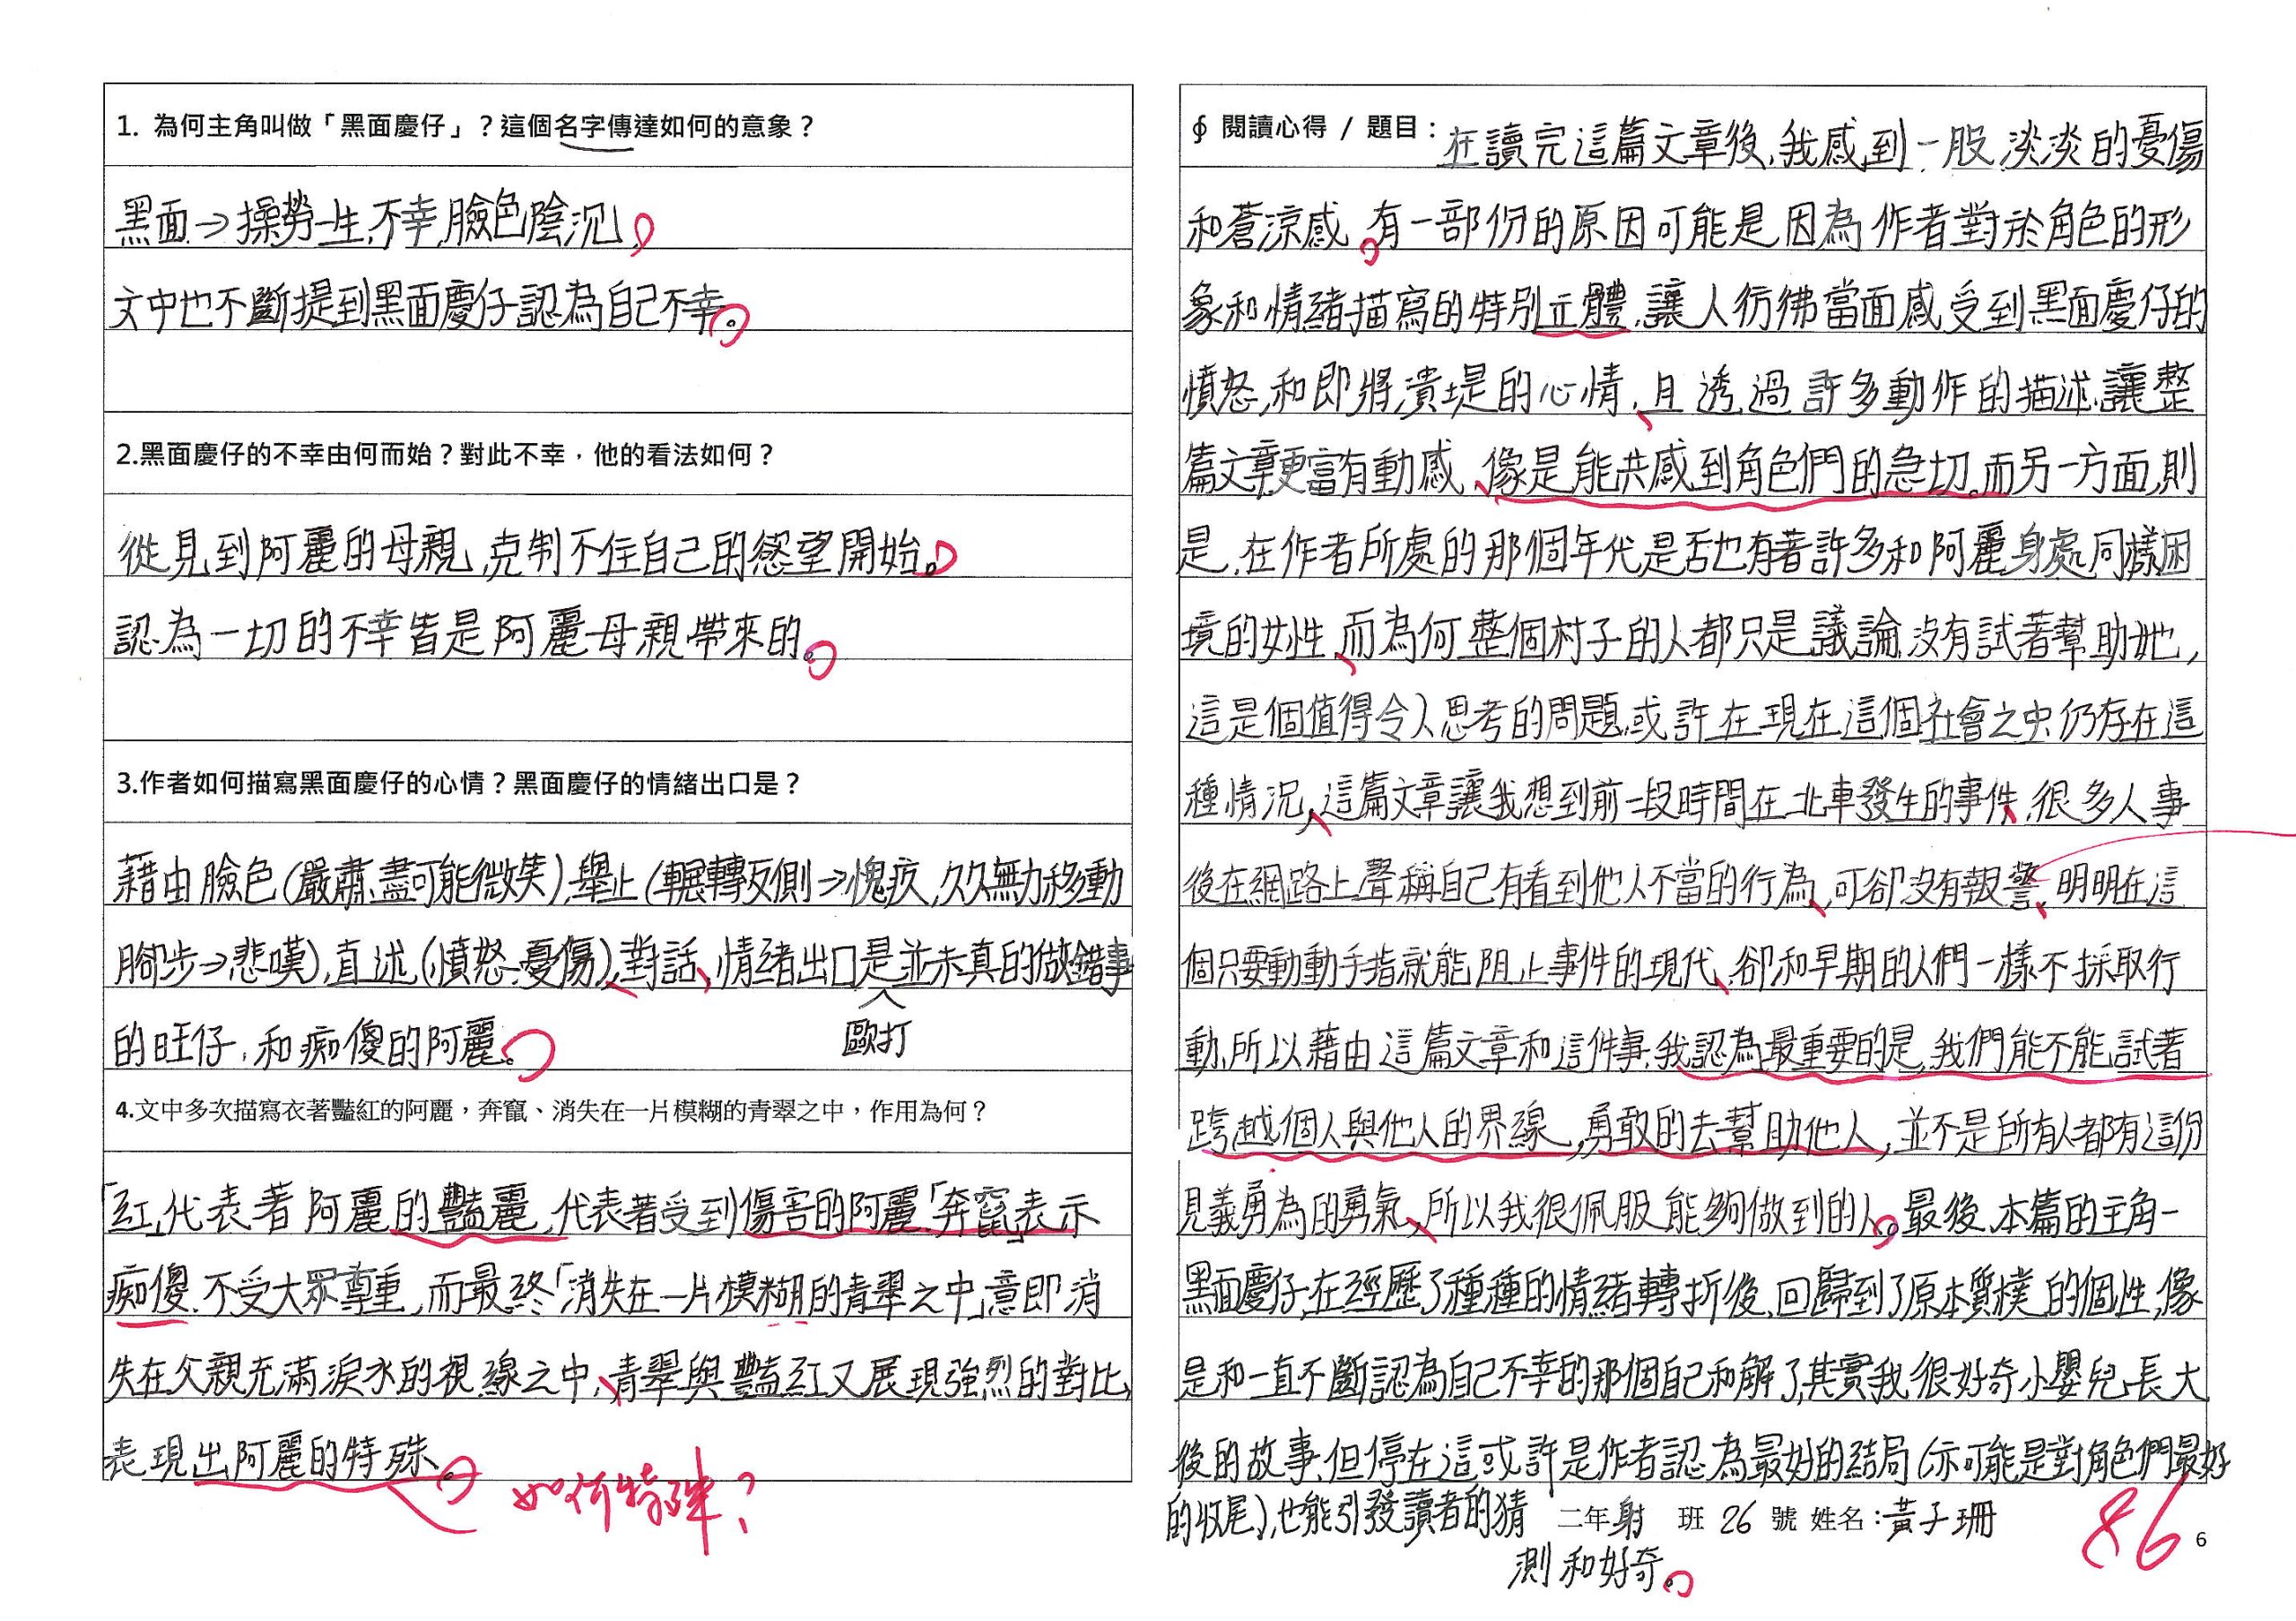 1. 為何主角叫做「黑面慶仔」？這個名字傳達如何的意象？
黑面→操勞一生,不幸,臉色陰沉,
文中也不斷提到黑面慶仔認為自己不幸。
2.黑面慶仔的不幸由何而始？對此不幸，他的看法如何？
從見到阿麗的母親,克制不住自己的慾望開始。
認為一切的不幸皆是阿麗母親帶來的。
3.作者如何描寫黑面慶仔的心情？黑面慶仔的情緒出口是？
藉由臉色(嚴肅、盡可能微笑),舉止(輾轉反側→愧疚,久久無力移動
腳步→悲嘆),直述(憤怒、憂傷),對話,情緒出口是並未真的做錯事
歐打
的旺仔,和痴傻的阿麗。
4.文中多次描寫衣著豔紅的阿麗，奔竄、消失在一片模糊的青翠之中，作用為何？
「紅」代表著阿麗的豔麗,代表著受到傷害的阿麗「奔竄」表示
痴傻,不受大眾尊重,而最終「消失在一片模糊的青翠之中」意即消
失在父親充滿淚水的視線之中,青翠與豔紅又展現強烈的對比,
表現出阿麗的特殊。
如何特殊？
∮ 閱讀心得 / 題目：在讀完這篇文章後,我感到一股淡淡的憂傷
和蒼涼感,有一部份的原因可能是因為作者對於角色的形
象和情緒描寫的特別立體,讓人彷彿當面感受到黑面慶仔的
憤怒,和即將潰堤的心情,且透過許多動作的描述,讓整
篇文章更富有動感,像是能共感到角色們的急切。而另一方面,則
是,在作者所處的那個年代是否也有著許多和阿麗身處同樣困
境的女性,而為何整個村子的人都只是議論,沒有試著幫助她,
這是個值得令人思考的問題,或許在現在這個社會之中,仍存在這
種情況,這篇文章讓我想到前一段時間在北車發生的事件,很多人事
後在網路上聲稱自己有看到他人不當的行為,可卻沒有報警,明明在這
個只要動動手指就能阻止事件的現代,卻和早期的人們一樣不採取行
動,所以藉由這篇文章和這件事,我認為最重要的是,我們能不能試著
跨越個人與他人的界線,勇敢的去幫助他人,並不是所有人都有這份
見義勇為的勇氣,所以我很佩服能夠做到的人。最後,本篇的主角一
黑面慶仔,在經歷了種種的情緒轉折後,回歸到了原本質樸的個性,像
是和一直不斷認為自己不幸的那個自己和解了,其實我很好奇小嬰兒長大
後的故事,但停在這或許是作者認為最好的結局(亦可能是對角色們最好
的收尾),也能引發讀者的猜
測和好奇。
二年射 班 26 號 姓名：黃子珊
86
6